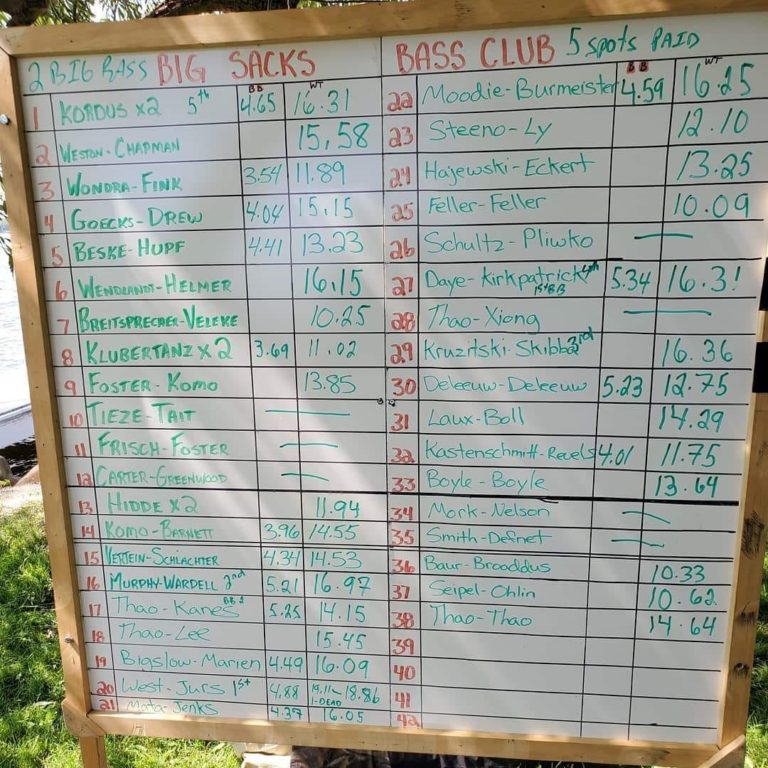 2 BIG BASS BIG SACKS BASS CLUB 5 SPOTS PAID
BB WT
1 KORDUS x2 5th 4.65 16.31
2 WESTON-CHAPMAN 15.58
3 WONDRA-FINK 3.54 11.89
4 GOECKS-DREW 4.04 15.15
5 BESKE-HUPF 4.41 13.23
6 WENDLANDT-HELMER 16.15
7 BREITSPRECHER-VELEKE 10.25
8 KLUBERTANZ x2 3.69 11.02
9 FOSTER-KOMO 13.85
10 TIEZE-TAIT —
11 FRISCH-FOSTER —
12 CARTER-GREENWOOD —
13 HIDDE x2 11.94
14 KOMO-BARNETT 3.96 14.55
15 VERTEIN-SCHLACHTER 4.34 14.53
16 MURPHY-WARDELL 2nd 5.21 16.97
17 Thao-Kanes 5.25 14.15
18 Thao-Lee 15.45
19 Bigslow-Marien 4.49 16.09
20 West-Jurs 1st 4.88 19.11- 18.86
1-DEAD
21 Mota-Jenks 4.37 16.05
BB WT
22 Moodie-Burmeister 4.59 16.25
23 Steeno-Ly 12.10
24 Hajewski-Eckert 13.25
25 Feller-Feller 10.09
26 Schultz-Pliwko —
27 Daye-Kirkpatrick 4th 5.34 16.31
1st BB
28 Thao-Xiong —
29 Kruzitski-Skibba 3rd 16.36
30 Deleeuw-Deleeuw 5.23 12.75
31 Laux-Boll 14.29
32 Kastenschmitt-Revels 4.01 11.75
33 Boyle-Boyle 13.64
34 Mork-Nelson —
35 Smith-Defnet —
36 Baur-Brooddus 10.33
37 Seipel-Ohlin 10.62
38 Thao-Thao 14.64
39
40
41
42